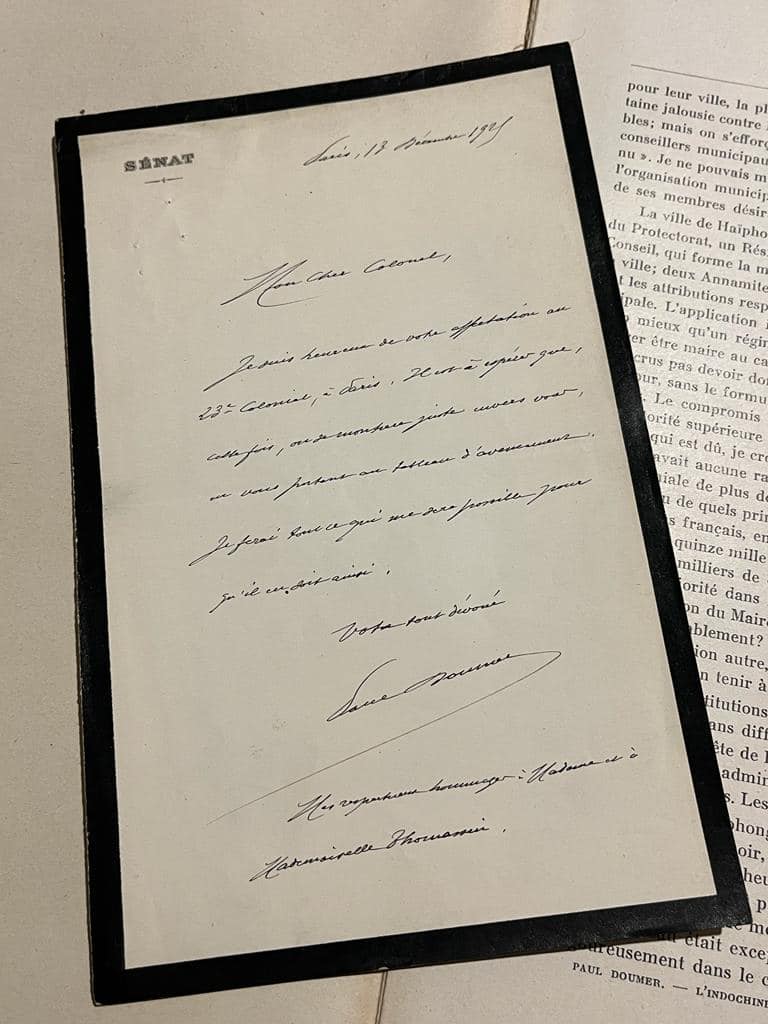 SÉNAT
Paris, 13 Décembre 1925
Mon cher Colonel,
Je suis heureux de votre affectation au
23e Colonial, à Paris. Il est à espérer que,
cette fois, on se montrera juste envers vous,
en vous portant au tableau d'avancement.
Je ferai tout ce qui me sera possible pour
qu'il en soit ainsi.
Votre tout dévoué
Paul Doumer
Mes respectueux hommages à Madame et à
Mademoiselle Thomassin.
pour leur ville, la pl
taine jalousie contre l
bles; mais on s'efforç
conseillers municipau
nu ». Je ne pouvais m
l'organisation municip
de ses membres désir
La ville de Haïpho
du Protectorat, un Rés
Conseil, qui forme la m
ville; deux Annamite
t les attributions resp
ipale. L'application
mieux qu'un régim
er être maire au ca
crus pas devoir do
our, sans le formu
Le compromis
orité supérieure
qui est dû, je cr
avait aucune ra
niale de plus d
u de quels prin
s français, en
quinze mille
milliers de
orité dans
on du Mair
blement?
ion autre,
n tenir à
titutions
ans diff
ête de l
admin
s. Les
phong
oir,
heu
p
me
était excep
eureusement dans le c
PAUL DOUMER. — L'INDOCHINE